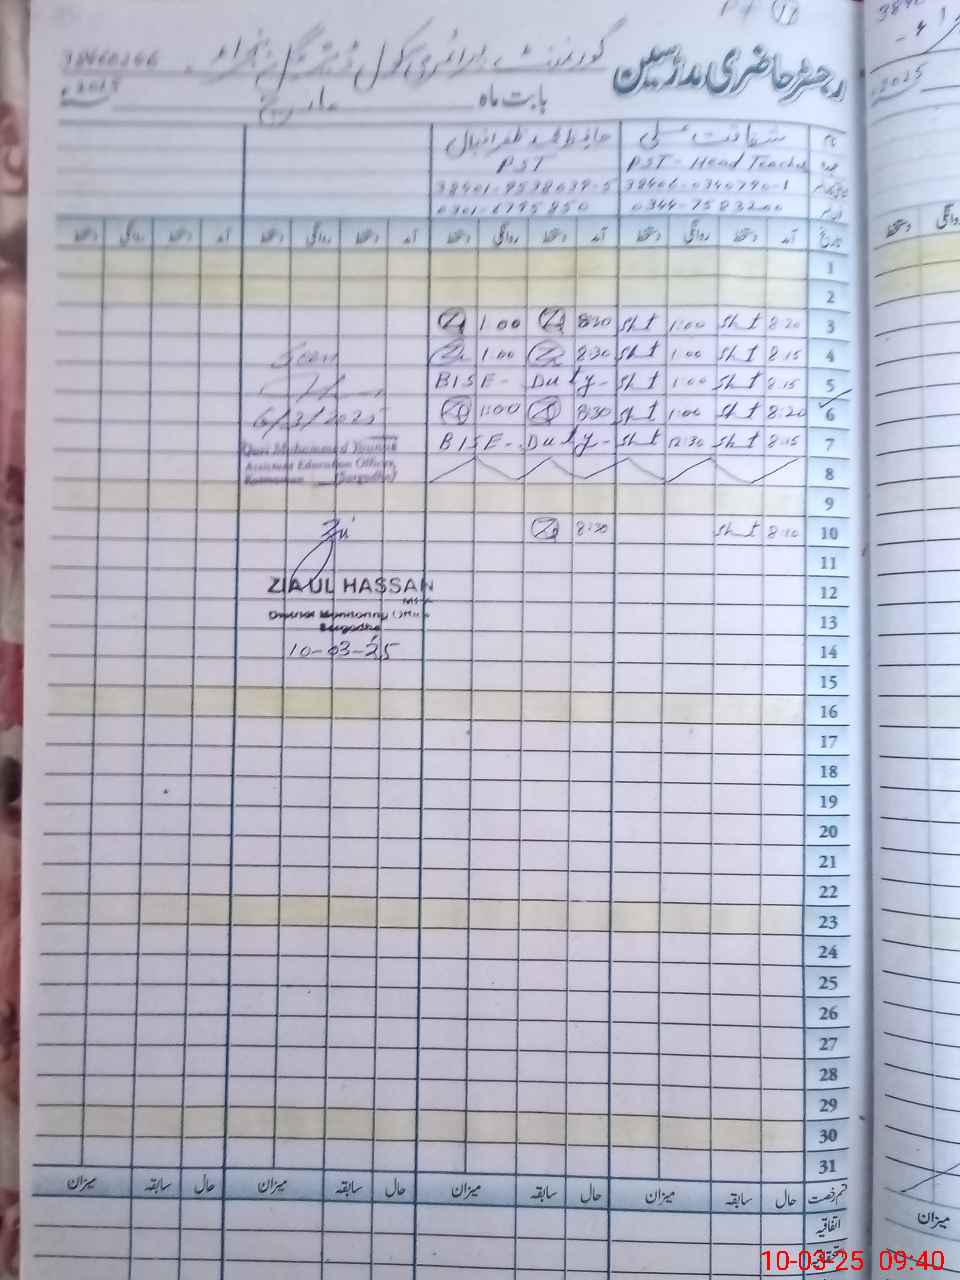 رجسٹر حاضری مدرسین گورنمنٹ پرائمری سکول 38460266
بابت ماہ مارچ 2025ء
نام شفاقت علی حافظ محمد ظفر اقبال
عہدہ PST - Head Teacher PST
38406-0340790-1 38401-9538039-5
0344-7583200 0301-6795850
تاریخ آمد دستخط روانگی دستخط آمد دستخط روانگی دستخط آمد دستخط روانگی دستخط آمد دستخط روانگی دستخط
1
2
3 8:20 1:00 8:30 1:00
4 8:15 1:00 8:30 1:00
5 8:15 1:00 BISE - Duty -
6 8:20 1:00 8:30 1:00
7 8:15 12:30 BISE - Duty -
8
9
10 8:10 8:30
11
12
13
14
15
16
17
18
19
20
21
22
23
24
25
26
27
28
29
30
31
Seen
6/3/2025
Qari Muhammad Younas
Assistant Education Officer
(Sargodha)
ZIA UL HASSAN
District Monitoring Officer
Sargodha
10-03-25
قسم رخصت حال سابقہ میزان حال سابقہ میزان حال سابقہ میزان حال سابقہ میزان
اتفاقیہ
2025
دستخط روانگی
میزان
10-03-25 09:40